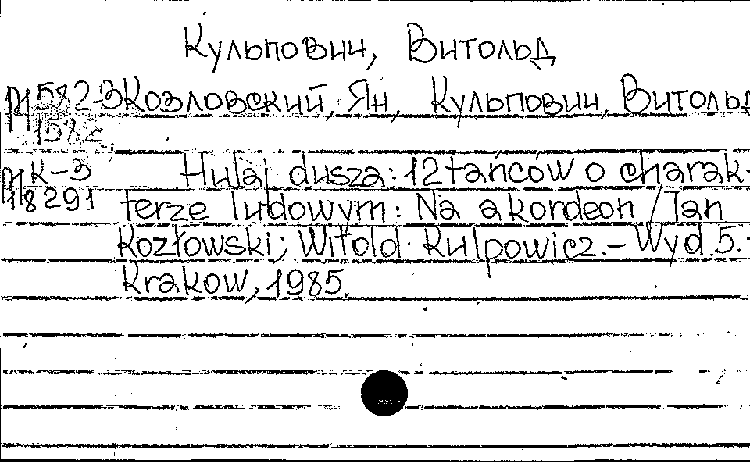 Кульпович, Витольд
Козловский, Ян, Кульпович, Витольд
К-3 Hulaj dusza: 12 tańców o charak-
291 terze ludowym: Na akordeon / Jan
Kozłowski; Witold Kulpowicz.- Wyd 5.-
Krakow, 1985.